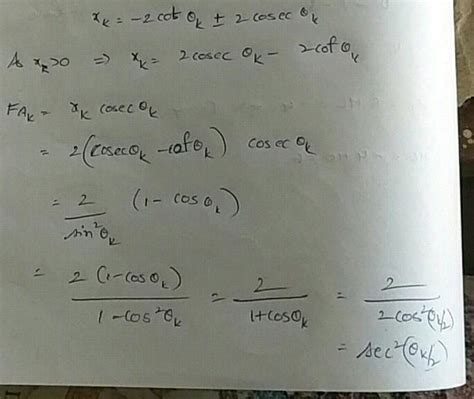 x_k = -2cot θ_k ± 2 cosec θ_k
As x_k>0 ⇒ x_k = 2cosec θ_k - 2cot θ_k
FA_k = x_k cosec θ_k
= 2(cosec θ_k - cot θ_k) cosec θ_k
= 2/sin²θ_k (1 - cos θ_k)
= 2(1-cosθ_k)/1-cos²θ_k = 2/1+cosθ_k = 2/2cos²(θ_k/2)
= sec²(θ_k/2)